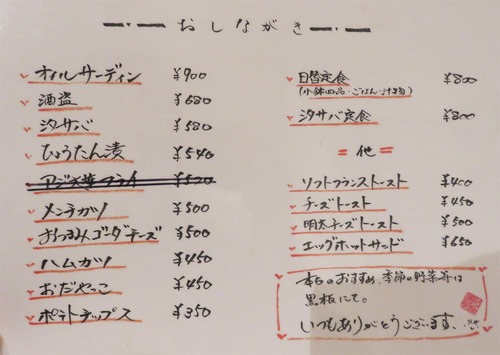 おしながき
オイルサーディン ¥900
酒盗 ¥680
汐サバ ¥580
ひょうたん漬 ¥540
アジ大葉フライ ¥520
メンチカツ ¥500
おつまみゴーダチーズ ¥500
ハムカツ ¥450
おだやっこ ¥450
ポテトチップス ¥350
日替定食 ¥800
(小鉢四品・ごはん・汁物)
汐サバ定食 ¥800
= 他 =
ソフトフランストースト ¥400
チーズトースト ¥450
明太チーズトースト ¥500
エッグホットサンド ¥650
本日のおすすめ、季節の野菜等は
黒板にて。
いつもありがとうございます。